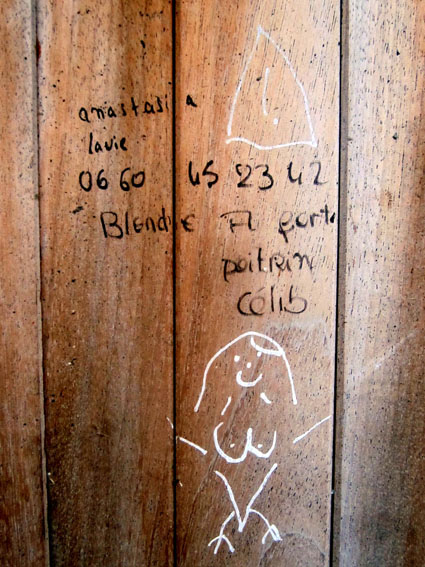 anastasia
lavie
06 60 45 23 42
Blonde A forte
poitrin
Célib